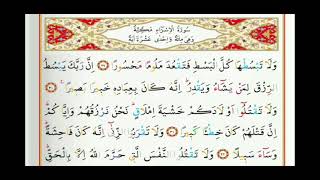 سُورَةُ الْإِسْرَاءِ مَكِّيَّةٌ
وَهِيَ مِائَةٌ وَاِحْدٰى عَشْرَةَ اٰيَةً
وَلَا تَبْسُطْهَا كُلَّ الْبَسْطِ فَتَقْعُدَ مَلُومًا مَحْسُورًا ۞ اِنَّ رَبَّكَ يَبْسُطُ
الرِّزْقَ لِمَنْ يَشَٓاءُ وَيَقْدِرُ اِنَّهُ كَانَ بِعِبَادِهِ خَبِيرًا بَصِيرًا ۞ وَلَا
تَقْتُلُٓوا اَوْلَادَكُمْ خَشْيَةَ اِمْلَاقٍ نَحْنُ نَرْزُقُهُمْ وَاِيَّاكُمْ
اِنَّ قَتْلَهُمْ كَانَ خِطْـًٔا كَبِيرًا ۞ وَلَا تَقْرَبُوا الزِّنٰٓى اِنَّهُ كَانَ فَاحِشَةً
وَسَٓاءَ سَبِيلًا ۞ وَلَا تَقْتُلُوا النَّفْسَ الَّتِي حَرَّمَ اللّٰهُ اِلَّا بِالْحَقِّ